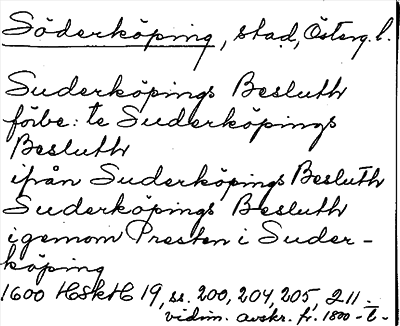 Söderköping, stad, Österg. l.
Suderköpings Besluth
förbe: te Suderköpings
Besluth
ifrån Suderköpings Besluth
Suderköpings Besluth
igemom Presten i Suder-
köping
1600 HSkH 19, ss. 200, 204, 205, 211.
vidim. avskr. fr. 1800-t.